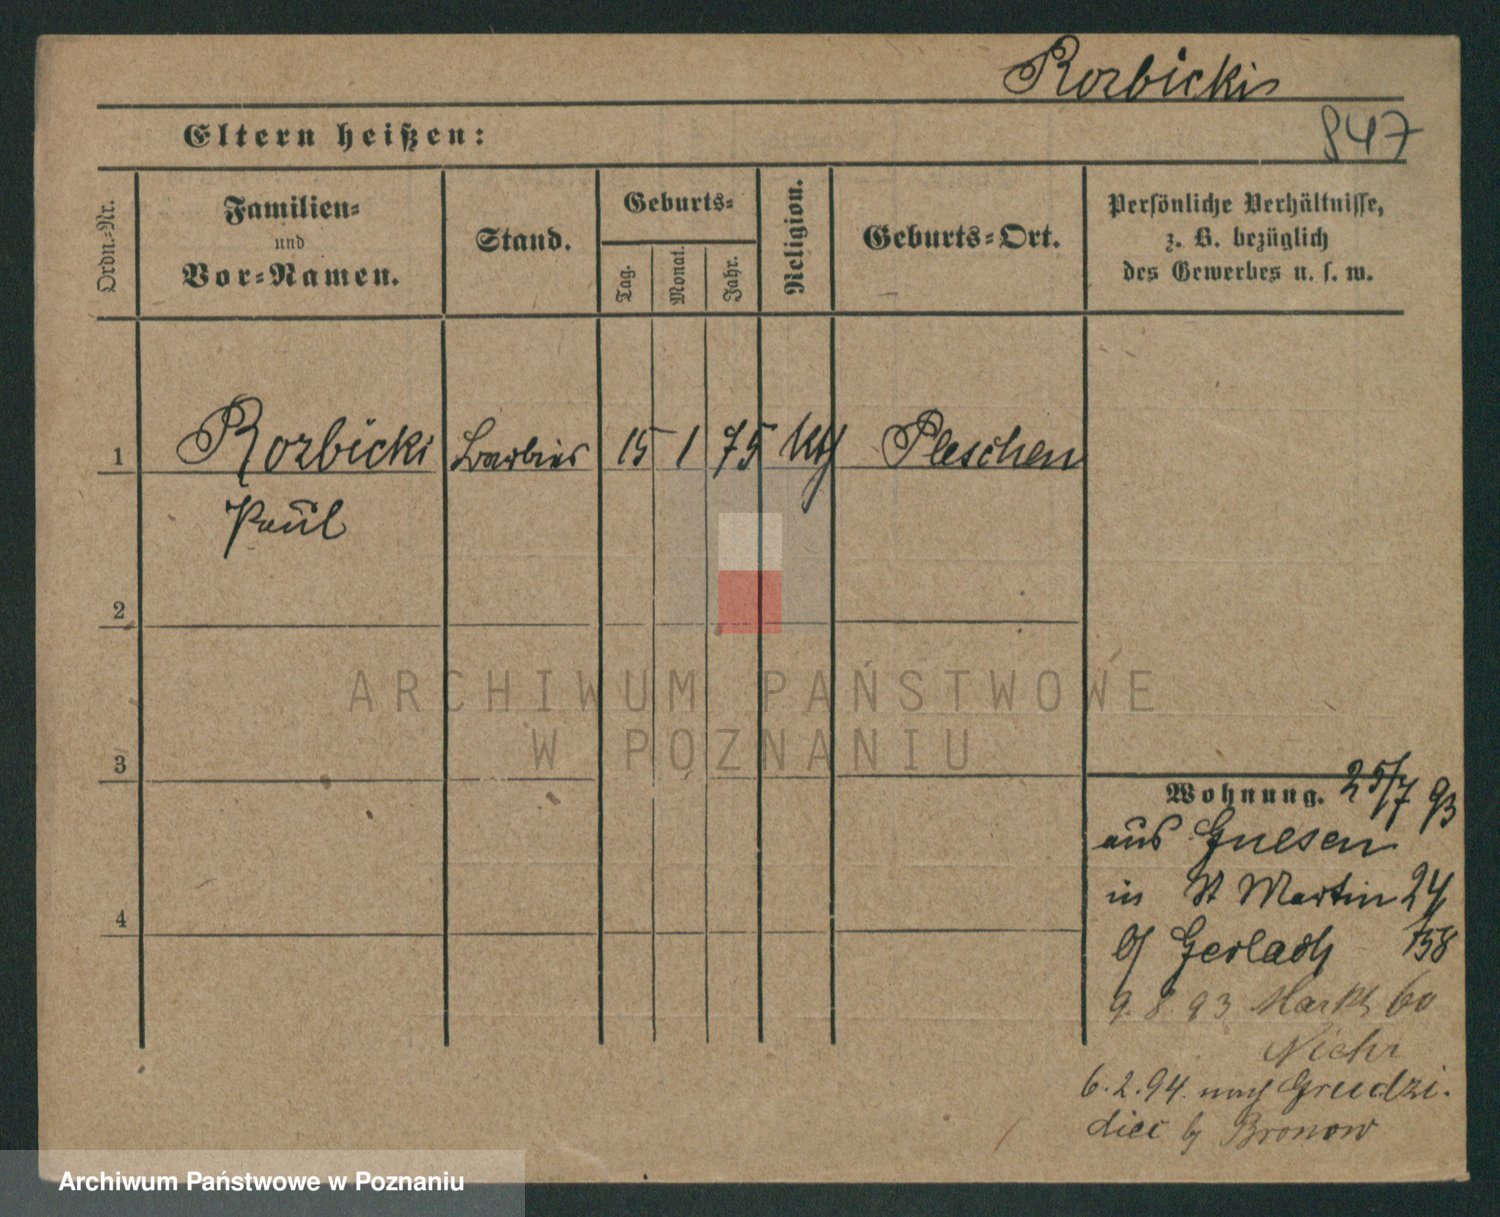 Rozbicki
847
Eltern heißen:
Ordn.-Nr.
Familien-
und
Vor-Namen.
Stand.
Geburts-
Tag.
Monat.
Jahr.
Religion.
Geburts-Ort.
Persönliche Verhältnisse,
z. B. bezüglich
des Gewerbes u. s. w.
1 Rozbicki Barbier 15 1 75 kth Pleschen
Paul
2
3
4
Wohnung. 25/7 93
aus Gnesen
in St Martin 24
b/ Gerlach 158
9. 8. 93 Markt 60
6. 2. 94. nach Grudzi-
elec b/ Bronow
ARCHIWUM PAŃSTWOWE
W POZNANIU
Archiwum Państwowe w Poznaniu